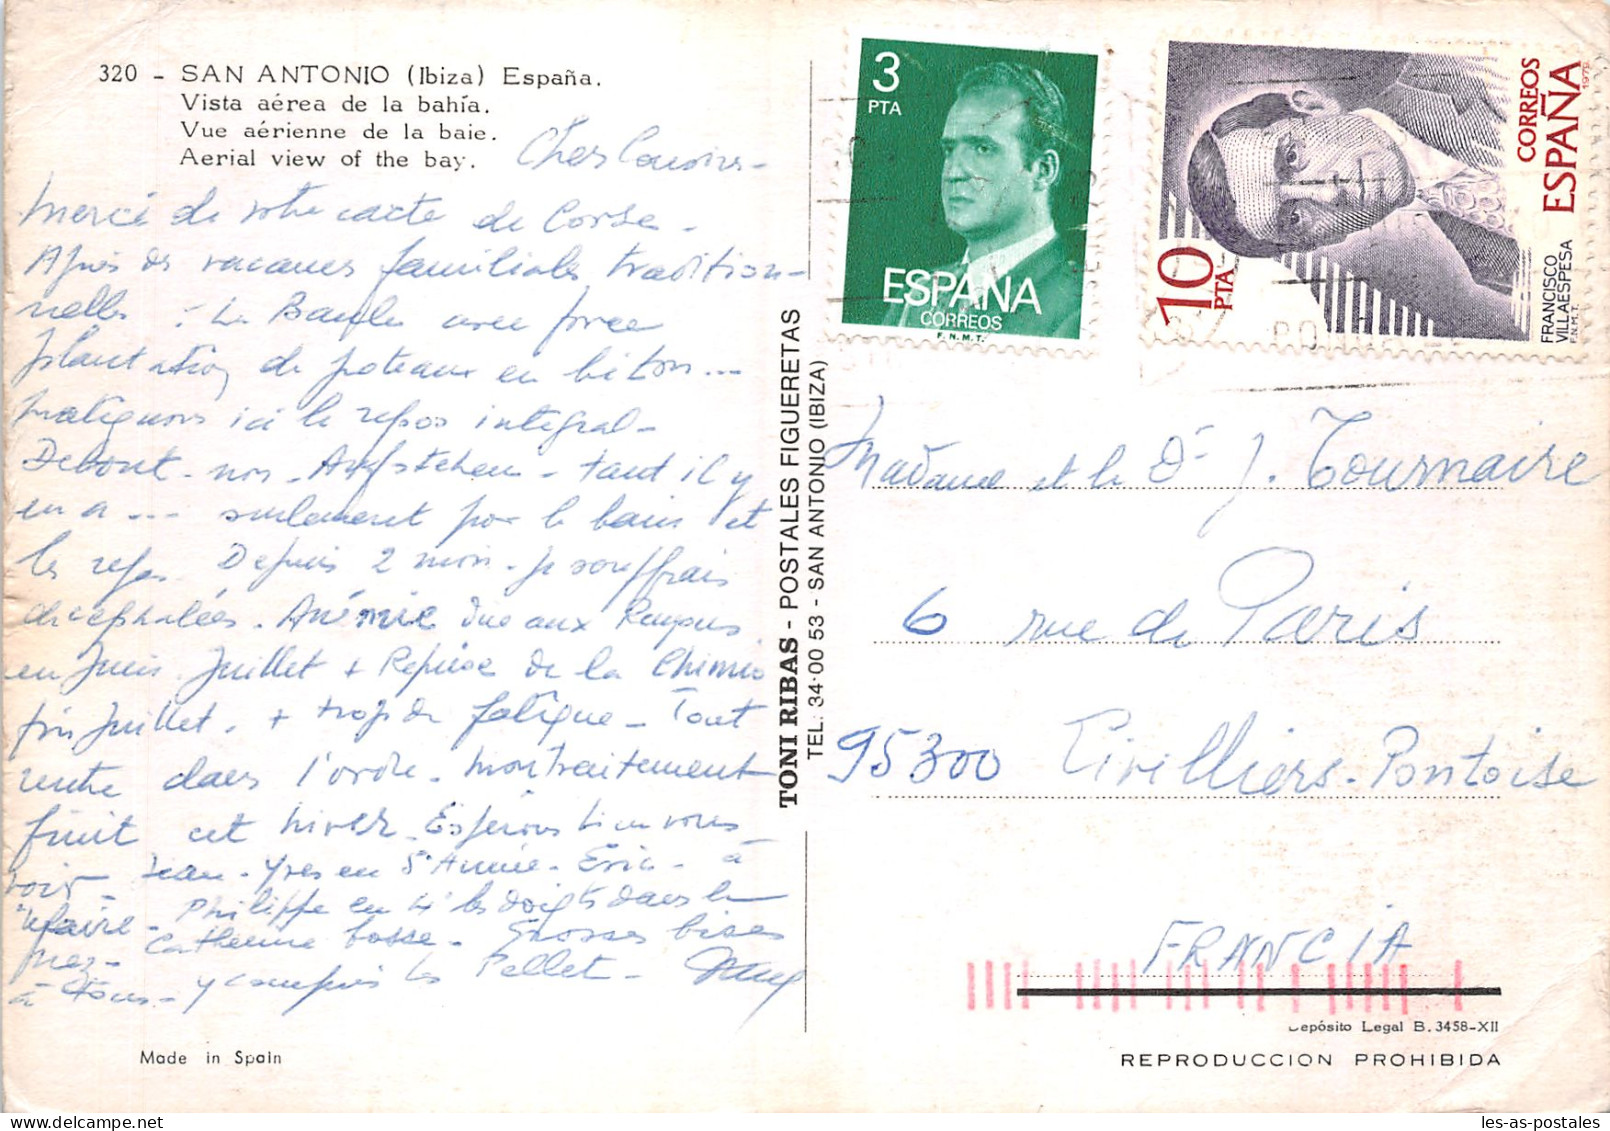 320 - SAN ANTONIO (Ibiza) España.
Vista aérea de la bahía.
Vue aérienne de la baie.
Aerial view of the bay.
Chers Cousins -
Merci de votre carte de Corse -
Après des vacances familiales tradition-
nelles : La Baule avec force
plantation de poteaux en béton ...
pratiquons ici le repos intégral -
Debout - nos - tant il y
en a ... seulement pour le bain et
les repas. Depuis 2 mois. Je souffrais
de céphalées. Anémie due aux Rayons
en Juin Juillet + Reprise de la Chimio
fin Juillet. + trop de fatigue - Tout
rentre dans l'ordre. Mon traitement
finit cet hiver. Espérons bien vous
voir - Jean-Yves en 5e Année - Eric - à
refaire - Philippe en 4e les doigts dans le
nez - Catherine bosse - Grosses bises
à tous - y compris les Pellet -
3
PTA
ESPAÑA
CORREOS
F.N.M.T.
10
PTA
CORREOS
ESPAÑA
1979
FRANCISCO
VILLAESPESA
F.N.M.T.
TONI RIBAS - POSTALES FIGUERETAS
TEL. 34·00 53 - SAN ANTONIO (IBIZA)
Madame et le Dr J. Tournaire
6 rue de Paris
95300 Livilliers-Pontoise
FRANCIA
Depósito Legal B. 3458-XII
REPRODUCCION PROHIBIDA
Made in Spain
les-as-postales